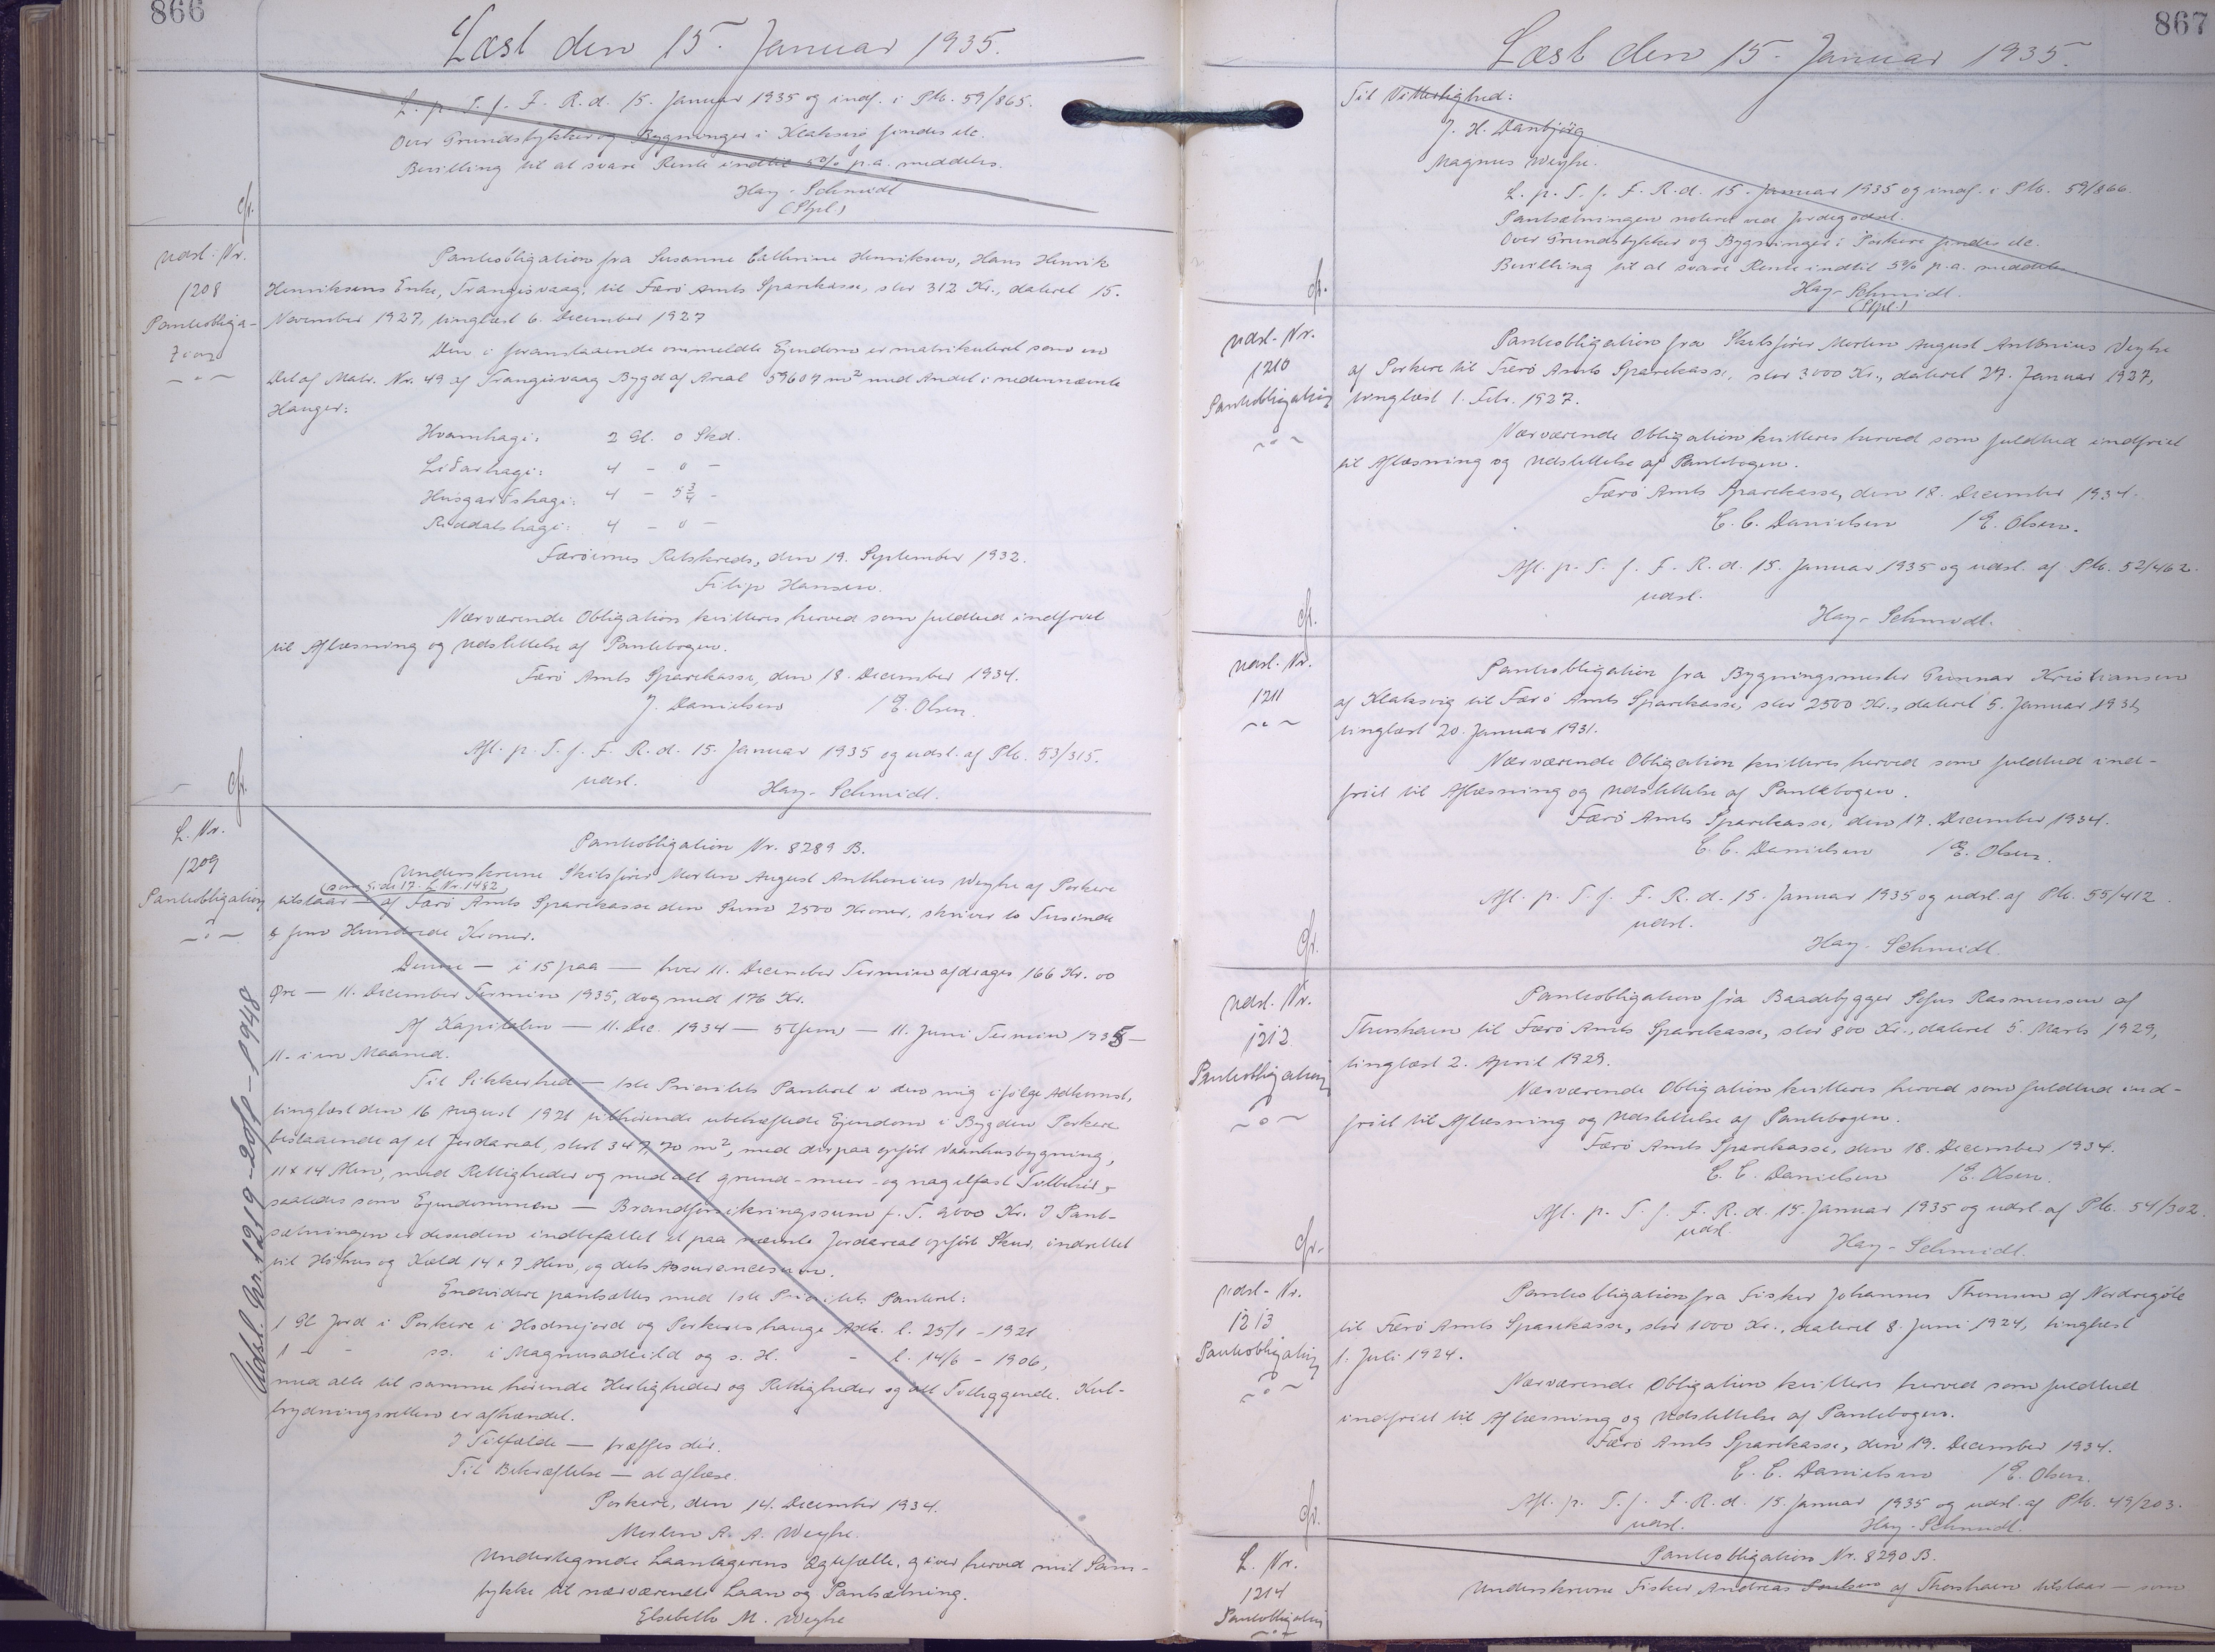 866
Læst den 15. Januar 1935.
L. p. T. f. F. R. d. 15. Januar 1935 og indf. i Ptb. 59/865.
Over Grundstykker og Bygninger i Klaksvig findes etc.
Bevilling til at svare Rente indtil 5% p.a. meddeles.
Hay-Schmidt
(Stpl.)
Cfr.
Udsl. Nr.
1208
Pantobliga-
tion
Pantobligation fra Susanne Cathrine Henriksen, Hans Henrik
Henriksens Enke, Trangisvaag, til Færø Amts Sparekasse, stor 312 Kr., dateret 15.
November 1927, tinglæst 6. December 1927
Den i foranstaaende ommeldte Ejendom er matrikuleret som en
Del af Matr. Nr. 49 af Trangisvaag Bygd af Areal 59607 m² med Andel i nedennævnte
Hauger:
Hvamhagi: 2 Gl. 0 Skd.
Liðarhagi: 4 - 0 -
Húsgarðshagi: 4 - 5 3/4 -
Ruddalshagi: 4 - 0 -
Færøernes Retskreds, den 19. September 1932.
Filip Hansen.
Nærværende Obligation kvitteres herved som fuldtud indfriet
til Aflæsning og Udslettelse af Pantebogen.
Færø Amts Sparekasse, den 18. December 1934.
J. Danielsen / E. Olsen.
Afl. p. T. f. F. R. d. 15. Januar 1935 og udsl. af Ptb. 53/315.
udsl. Hay-Schmidt.
Cfr.
L. Nr.
1209
Pantobligation
Udsl. Nr. 1219 - 29/6 - 1948
Pantobligation Nr. 8289 B.
Underskrevne Skibsfører Morten August Anthonius Weyhe af Porkere
(som Side 17. L. Nr. 1482)
tilstaar — af Færø Amts Sparekasse den Sum 2500 Kroner, skriver to Tusinde
& fem Hundrede Kroner.
Denne — i 15 paa — hver 11. December Termin afdrages 166 Kr. 00
Øre — 11. December Termin 1935, dog med 176 Kr.
Af Kapitalen — 11. Dec. 1934 — 5 (fem — 11. Juni Termin 1935 —
11. i en Maaned.
Til Sikkerhed — 1ste Prioritets Panteret i den mig ifølge Adkomst,
tinglæst den 16 August 1921 tilhørende ubehæftede Ejendom i Bygden Porkere
bestaaende af et Jordareal, stort 347,70 m², med derpaa opført Vaanhusbygning,
11 x 14 Alen, med Rettigheder og med alt grund- mur- og nagelfast Tilbehør,
saaledes som Ejendommen — Brandforsikringssum f. T. 9000 Kr. I Pant-
sætningen er desuden indbefattet et paa nævnte Jordareal opført Skur, indrettet
til Høhus og Kæld 14 x 7 Alen, og dets Assurancesum.
Endvidere pantsættes med 1ste Prioritets Panteret:
1 Gl Jord i Porkere i Hednejord og Porkereshauge Adk. l. 25/1 - 1921
1 - - ss. i Magnusadeild og s. H. - l. 14/6 - 1906,
med alle til samme hørende Herligheder og Rettigheder og alt Tilliggende. Kul-
brydningsretten er afhændet.
I Tilfælde — træffes der.
Til Bekræftelse — at aflæse.
Porkere, den 14. December 1934.
Morten A. A. Weyhe.
Undertegnede Laantagerens Ægtefælle, giver herved mit Sam-
tykke til nærværende Laan og Pantsætning.
Elsebeth M. Weyhe
867
Læst den 15. Januar 1935.
Til Vitterlighed:
J. H. Danbjørg
Magnus Weyhe.
L. p. T. f. F. R. d. 15. Januar 1935 og indf. i Ptb. 59/866.
Pantsætningen noteret ved Jordegodset.
Over Grundstykker og Bygninger i Porkere findes etc.
Bevilling til at svare Rente indtil 5% p.a. meddeles.
Hay-Schmidt.
(Stpl.)
Cfr.
Udsl. Nr.
1210
Pantobligation
Pantobligation fra Skibsfører Morten August Antonius Veyhe
af Porkere til Færø Amts Sparekasse, stor 3000 Kr., dateret 27. Januar 1927,
tinglæst 1. Febr. 1927.
Nærværende Obligation kvitteres herved som fuldtud indfriet
til Aflæsning og Udslettelse af Pantebogen.
Færø Amts Sparekasse, den 18. December 1934.
C. C. Danielsen / E. Olsen.
Afl. p. T. f. F. R. d. 15. Januar 1935 og udsl. af Ptb. 52/462.
udsl.
Hay-Schmidt.
Cfr.
Udsl. Nr.
1211
Pantobligation fra Bygningsmester Gunnar Kristiansen
af Klaksvig til Færø Amts Sparekasse, stor 2500 Kr., dateret 5. Januar 1931,
tinglæst 20. Januar 1931.
Nærværende Obligation kvitteres herved som fuldtud ind-
friet til Aflæsning og Udslettelse af Pantebogen.
Færø Amts Sparekasse, den 17. December 1934.
C. C. Danielsen / E. Olsen.
Afl. p. T. f. F. R. d. 15. Januar 1935 og udsl. af Ptb. 55/412.
udsl.
Hay-Schmidt.
Cfr.
Udsl. Nr.
1212
Pantobligation
Pantobligation fra Baadebygger Sofus Rasmussen af
Thorshavn til Færø Amts Sparekasse, stor 800 Kr., dateret 5. Marts 1929,
tinglæst 2. April 1929.
Nærværende Obligation kvitteres herved som fuldtud ind-
friet til Aflæsning og Udslettelse af Pantebogen.
Færø Amts Sparekasse, den 18. December 1934.
C. C. Danielsen / E. Olsen.
Afl. p. T. f. F. R. d. 15. Januar 1935 og udsl. af Ptb. 54/302.
udsl.
Hay-Schmidt.
Cfr.
Udsl. Nr.
1213
Pantobligation
Pantobligation fra Fisker Johannes Thomsen af Nordregøte
til Færø Amts Sparekasse, stor 1000 Kr., dateret 8. Juni 1924, tinglæst
1. Juli 1924.
Nærværende Obligation kvitteres herved som fuldtud
indfriet til Aflæsning og Udslettelse af Pantebogen.
Færø Amts Sparekasse, den 19. December 1934.
C. C. Danielsen / E. Olsen.
Afl. p. T. f. F. R. d. 15. Januar 1935 og udsl. af Ptb. 49/203.
udsl. Hay-Schmidt.
Cfr.
L. Nr.
1214
Pantobligation
Pantobligation Nr. 8290 B.
Underskrevne Fisker Andreas Poulsen af Thorshavn tilstaar — som